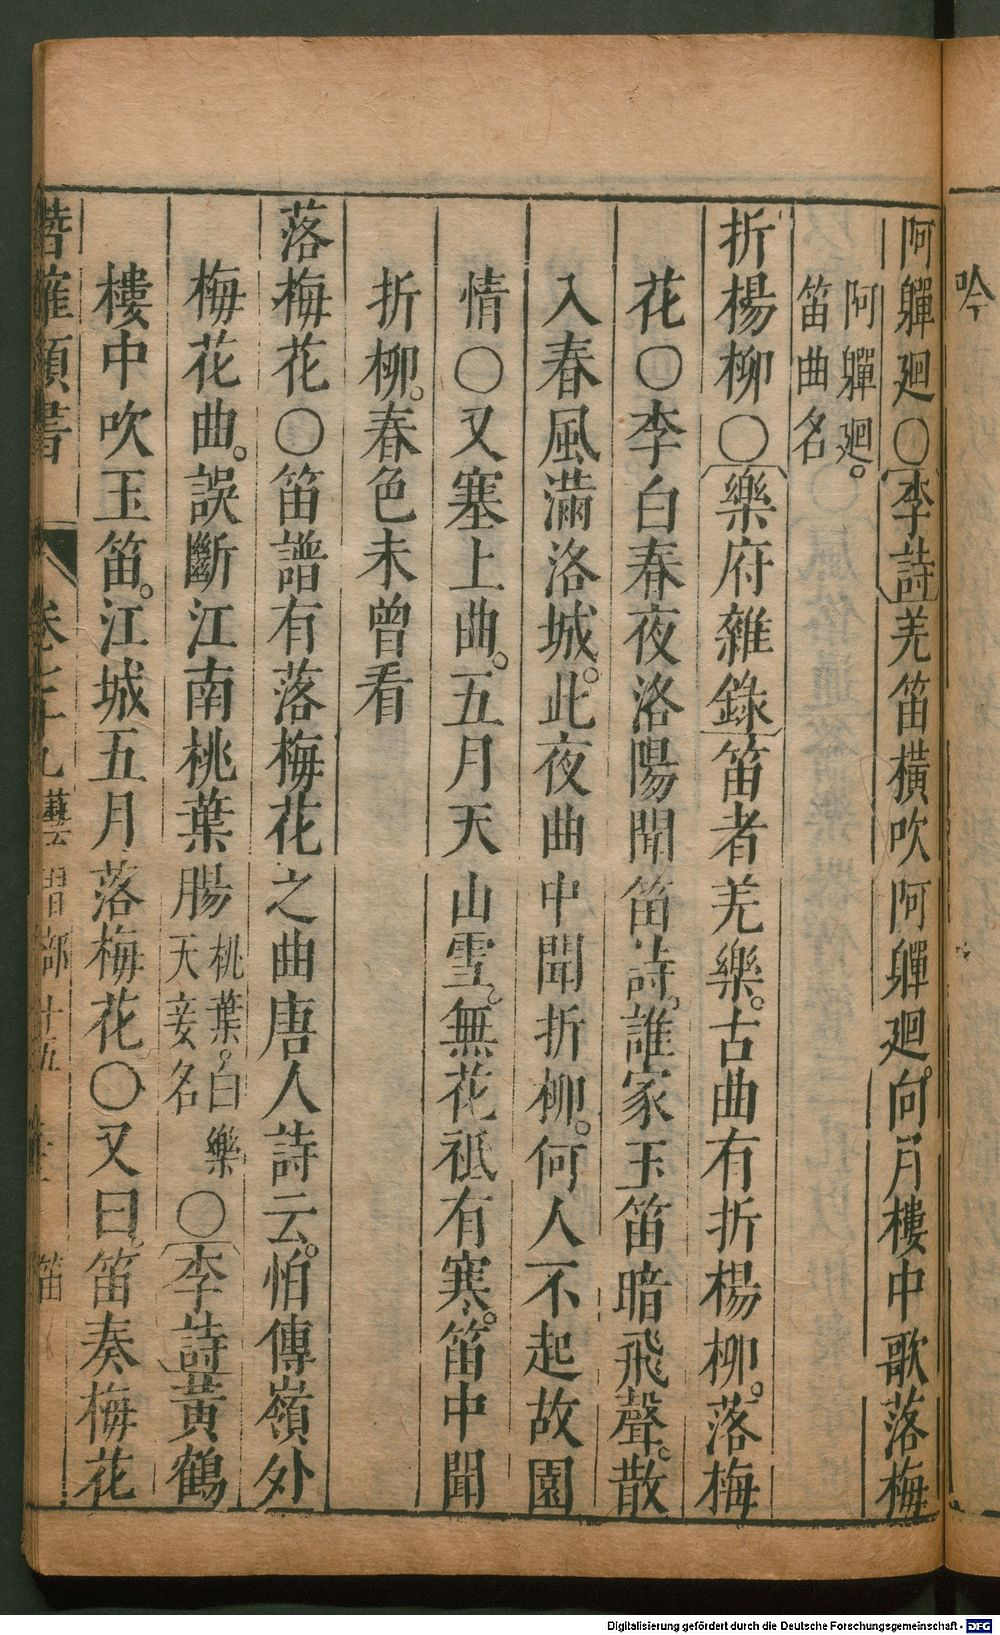 吟
阿軃廻〇李詩羌笛橫吹阿軃廻。向月樓中歌落梅
阿軃廻。
笛曲名
折楊柳〇樂府雜錄笛者羌樂。古曲有折楊柳。落梅
花〇李白春夜洛陽聞笛詩。誰家玉笛暗飛聲。散
入春風滿洛城。此夜曲中聞折柳。何人不起故園
情〇又塞上曲。五月天山雪。無花祗有寒。笛中聞
折柳。春色未曾看
落梅花〇笛譜有落梅花之曲唐人詩云。怕傳嶺外
梅花曲。誤斷江南桃葉腸桃葉。白樂天妾名〇李詩黃鶴
樓中吹玉笛。江城五月落梅花〇又曰。笛奏梅花
潛確類書 卷七十九 藝習部十五 笛
Digitalisierung gefördert durch die Deutsche Forschungsgemeinschaft - DFG